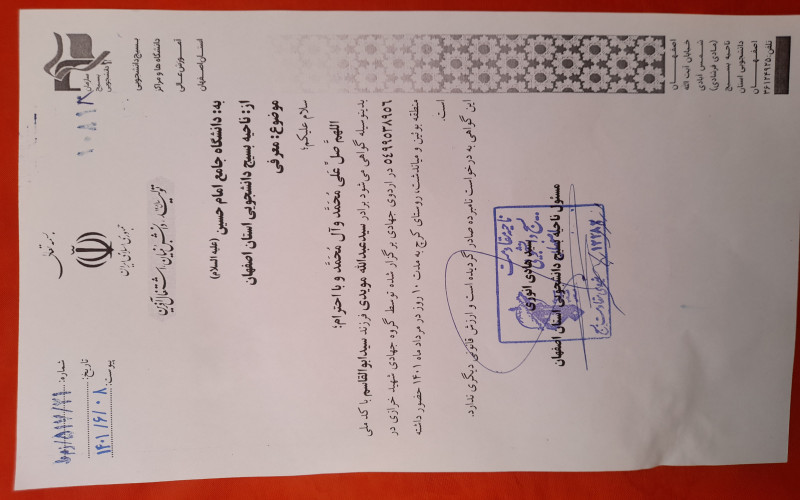 بسمه تعالی
جمهوری اسلامی ایران
شماره:
تاریخ: ۱۴۰۱/۶/۰۸
پیوست:
سازمان
بسیج
دانشجویی
بسیج دانشجویی
دانشگاه‌ها و مراکز
آموزش عالی
استان اصفهان
به: دانشگاه جامع امام حسین (علیه السلام)
از: ناحیه بسیج دانشجویی استان اصفهان
موضوع: معرفی
سلام علیکم؛
اللهم صل علی محمد و آل محمد و با احترام؛
بدینوسیله گواهی می‌شود برادر سیدعبدالله مویدی فرزند سیدابوالقاسم با کد ملی
۵۴۹۹۵۳۸۹۵۶ در اردوی جهادی برگزار شده توسط گروه جهادی شهید خرازی در
منطقه بوئین و میاندشت، روستای کرج به مدت ۱۰ روز در مرداد ماه ۱۴۰۱ حضور داشته
است.
این گواهی به درخواست نامبرده صادر گردیده است و ارزش قانونی دیگری ندارد.
سید هادی انوری
مسئول ناحیه بسیج دانشجویی استان اصفهان
اصفهان
خیابان آیت الله
شمس آبادی
ناحیه بسیج
دانشجویی استان
اصفهان
تلفن: ۳۶۱۲۴۹۲۵